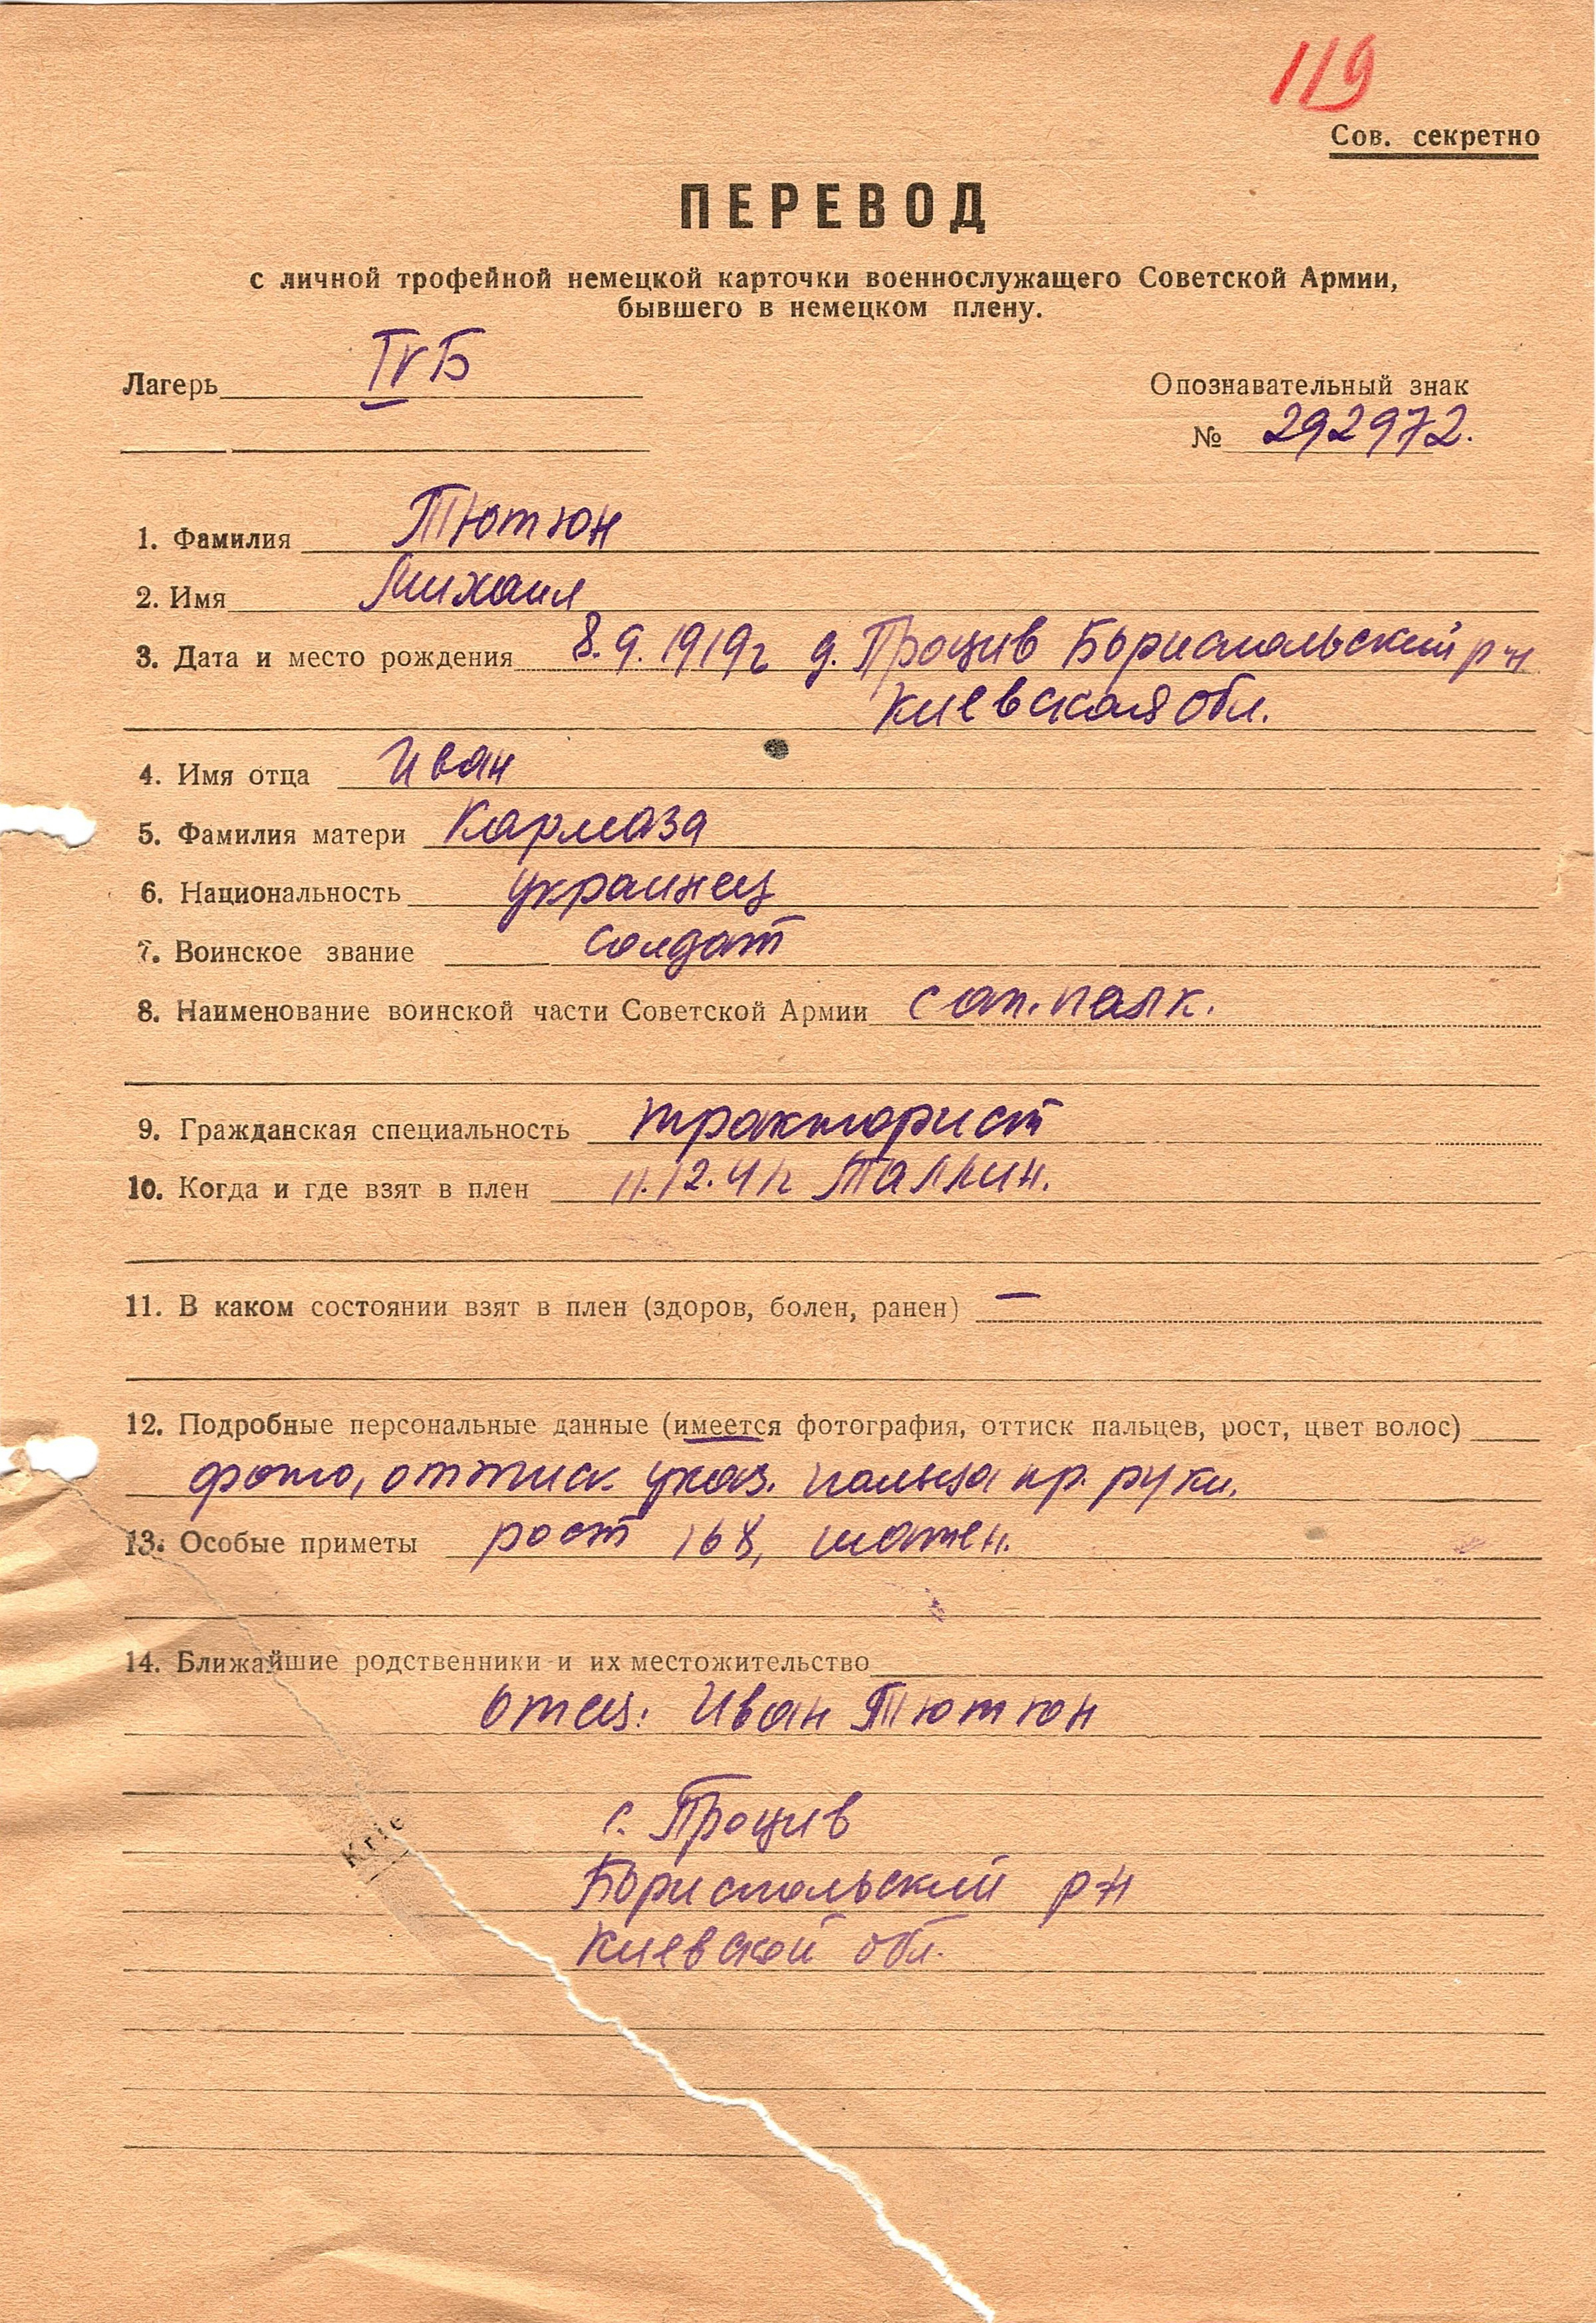 119
Сов. секретно
ПЕРЕВОД
с личной трофейной немецкой карточки военнослужащего Советской Армии,
бывшего в немецком плену.
Лагерь IVБ
Опознавательный знак
№ 292972.
1. Фамилия Тютюн
2. Имя Михаил
3. Дата и место рождения 8.9.1919г д. Процив Бориспольский р-н
Киевская обл.
4. Имя отца Иван
5. Фамилия матери Кармаза
6. Национальность украинец
7. Воинское звание солдат
8. Наименование воинской части Советской Армии сап. полк.
9. Гражданская специальность тракторист
10. Когда и где взят в плен 11.12.41г Таллин.
11. В каком состоянии взят в плен (здоров, болен, ранен) —
12. Подробные персональные данные (имеется фотография, оттиск пальцев, рост, цвет волос)
фото, оттиск указ. пальца пр. руки.
13. Особые приметы рост 168, шатен.
14. Ближайшие родственники и их местожительство
отец: Иван Тютюн
с. Процив
Krie
Бориспольский р-н
Киевской обл.